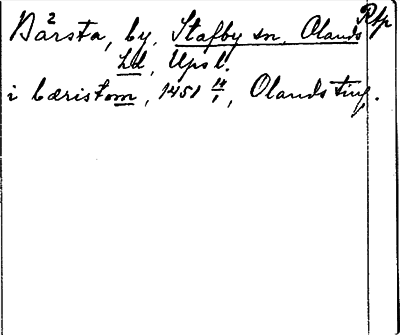 Rsp
Bårsta, by, Stafby sn, Olands
hd, Upsl.
i bæristom, 1451 14/1, Olands ting.